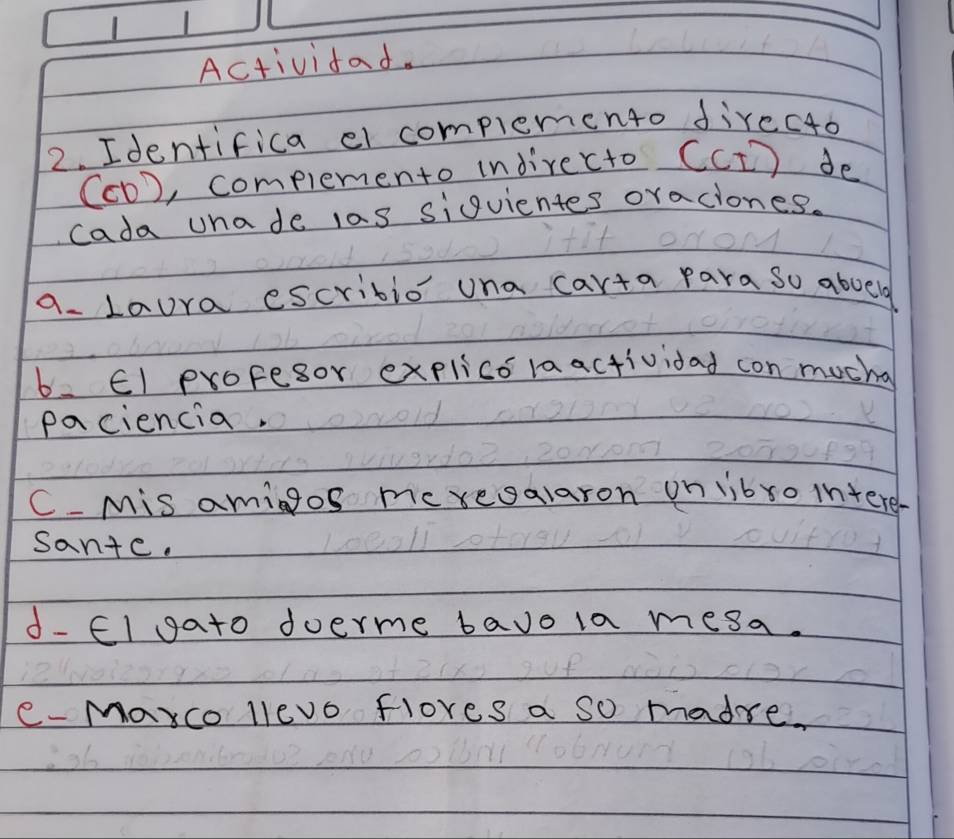 Actividad.
2. Identifica el complemento directo
(CD), complemento indirecto (CI) de
cada una de las siguientes oraciones.
a- Laura escribió una carta para su abuela.
b- El profesor explicó la actividad con mucha
paciencia.
c- Mis amigos me regalaron un libro intere-
sante.
d- El gato duerme bajo la mesa.
e- Marco llevo flores a su madre.